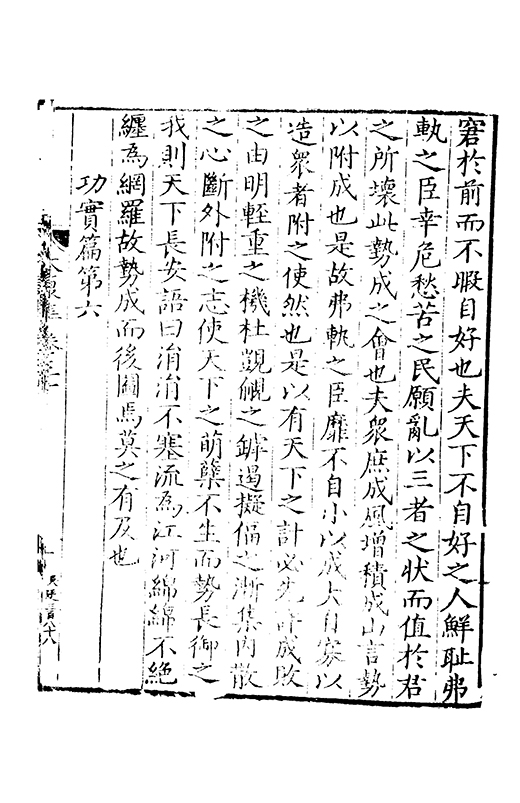 窘於前而不暇自好也夫天下不自好之人鮮耻弗
軌之臣幸危愁苦之民願亂以三者之状而值於君
之所壞此勢成之會也夫衆庶成風增積成山言勢
以附成也是故弗軌之臣靡不自小以成大自寡以
造衆者附之使然也是以有天下之計必先計成敗
之由明輊重之機杜覬覦之鏬遏擬偪之漸集内散
之心斷外附之志使天下之萌櫱不生而勢長御之
我則天下長安語曰涓涓不塞流為江河綿綿不絶
纏為網羅故勢成而後圖焉莫之有及也
功實篇第六